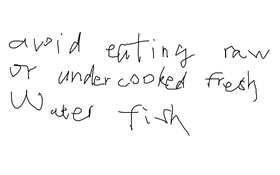 avoid eating raw
or undercooked fresh
Water fish